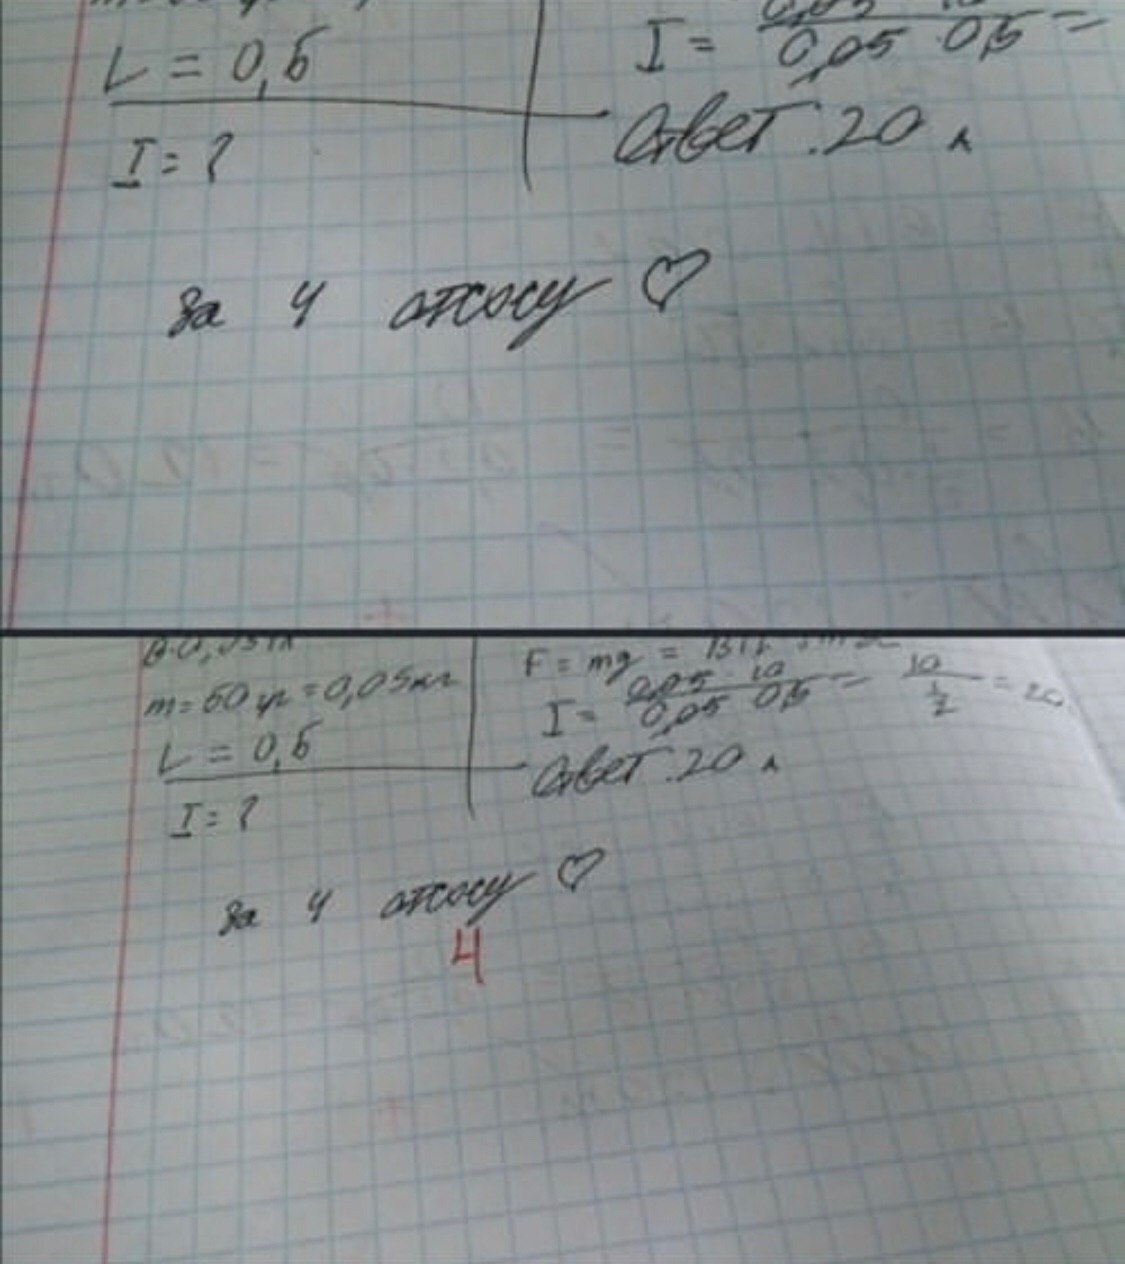 I = 0,05 10 / 0,05 0,5 =
L = 0,5
I = ?
Ответ: 20 А
за 4 отсосу ♡
m = 50 гр = 0,05 кг
L = 0,5
I = ?
F = mg =
I = 0,05 · 10 / 0,05 0,5 = 10 / 1/2 = 20
Ответ: 20 А
за 4 отсосу ♡
4